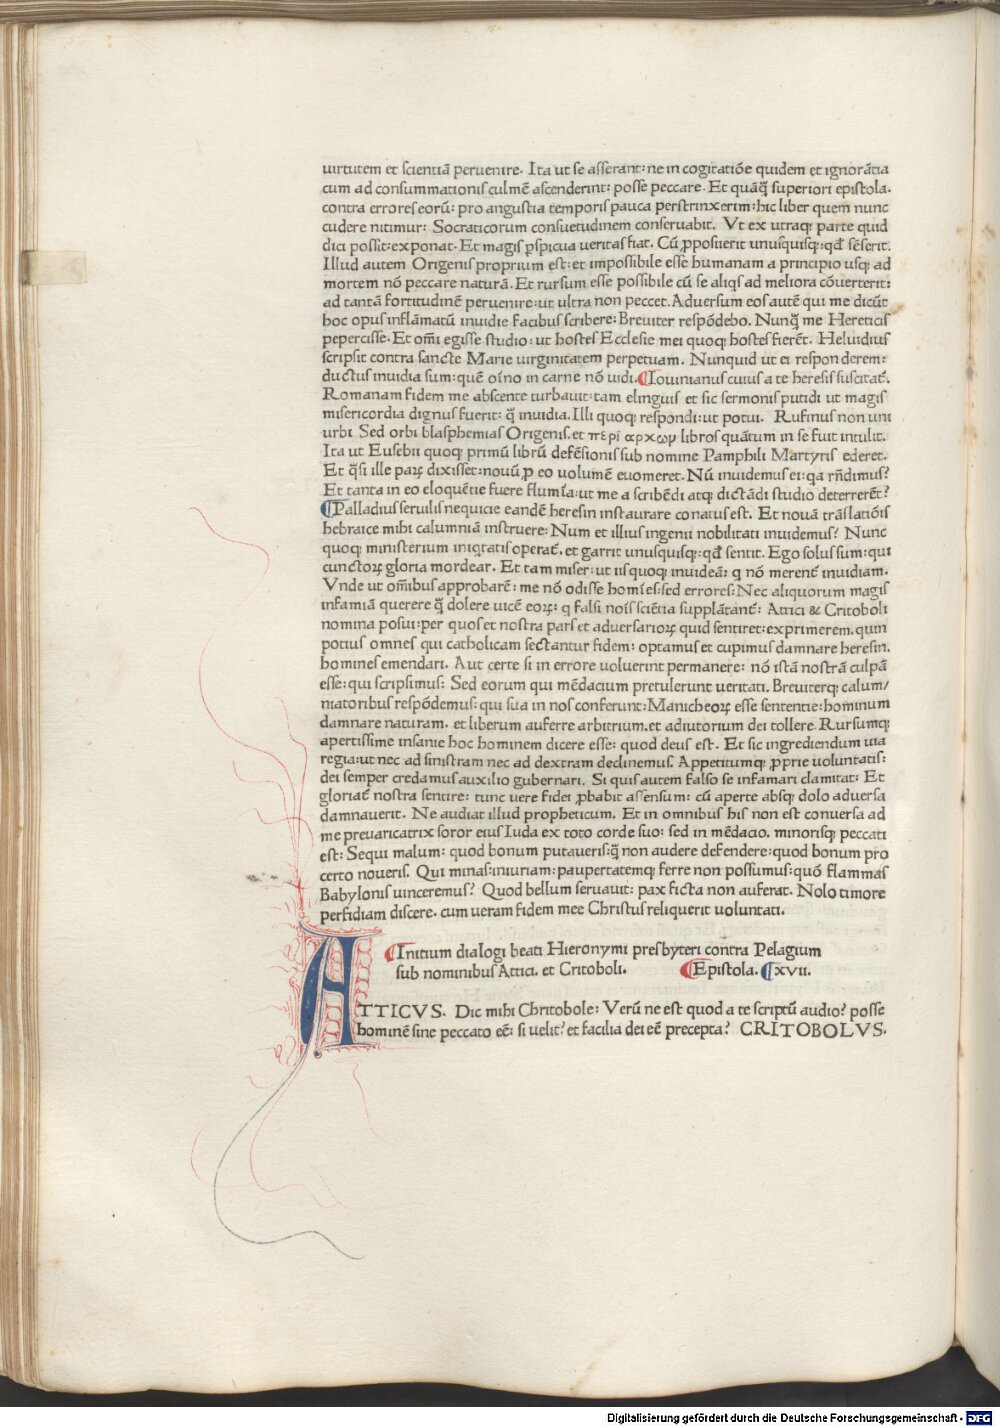 virtutem et scientiā peruenire. Ita ut se asserant: ne in cogitatiōe quidem et ignorātia
cum ad consummationis culmē ascenderint: posse peccare. Et quāq̄ superiori epistola.
contra errores eorū: pro angustia temporis pauca perstrinxerim: hic liber quem nunc
cudere nitimur: Socraticorum consuetudinem conseruabit. Vt ex utraq; parte quid
dici possit: exponat. Et magis ꝑspicua ueritas fiat. Cū ꝓposuerit unusquisq; qđ sēserit.
Illud autem Origenis proprium est: et impossibile esse humanam a principio usq; ad
mortem nō peccare naturā. Et rursum esse possibile cū se aliqs ad meliora cōuerterit:
ad tantā fortitudinē peruenire: ut ultra non peccet. Aduersum eos autē qui me dicūt
hoc opus inflāmatū inuidie facibus scribere: Breuiter respōdebo. Nunq̄ me Hereticis
pepercisse. Et omī egisse studio: ut hostes Ecclesie mei quoq; hostes fierēt. Heluidius
scripsit contra sancte Marie uirginitatem perpetuam. Nunquid ut ei responderem:
ductus inuidia sum: quē oīno in carne nō uidi. Iouinianus cuius a te heresis suscitat᷑.
Romanam fidem me abscente turbauit: tam elinguis et sic sermonis putidi ut magis
misericordia dignus fuerit: q̄ inuidia. Illi quoq; respondi: ut potui. Rufinus non uni
urbi Sed orbi blasphemias Origenis. et περὶ αρχωρ libros quātum in se fuit intulit.
Ita ut Eusebii quoq; primū librū defēsionis sub nomine Pamphili Martyris ederet.
Et q̄si ille parꝝ dixisset: nouū ꝓ eo uolumē euomeret. Nū inuidemus ei: qa rn̄dimus?
Et tanta in eo eloquētie fuere flumīa: ut me a scribēdi atq; dictādi studio deterrerēt?
Palladius seruilis nequicie eandē heresin instaurare conatus est. Et nouā trāslatiōis
hebraice mihi calumniā instruere: Num et illius ingenii nobilitati inuidemus? Nunc
quoq; ministerium iniqtatis operat᷑. et garrit unusquisq; qđ sentit. Ego solus sum: qui
cunctorꝝ gloria mordear. Et tam miser: ut iis quoq; inuideā: q nō merent᷑ inuidiam.
Vnde ut om̄ibus approbarē: me nō odisse homīes: sed errores: Nec aliquorum magis
infamiā querere q̄ dolere uicē eorꝝ: q falsi noīs sciētia supplātant᷑: Attici & Critoboli
nomina posui: per quos et nostra pars et aduersariorꝝ quid sentiret: exprimerem. quin
potius omnes qui catholicam sectantur fidem: optamus et cupimus damnare heresin.
homines emendari. Aut certe si in errore uoluerint permanere: nō istā nostrā culpā
esse: qui scripsimus: Sed eorum qui mēdacium pretulerunt ueritati. Breuiterq; calum/
niatoribus respōdemus: qui sua in nos conferunt: Manicheorꝝ esse sententie: hominum
damnare naturam. et liberum auferre arbitrium. et adiutorium dei tollere. Rursumq;
apertissime insanie hoc hominem dicere esse: quod deus est. Et sic ingrediendum uia
regia: ut nec ad sinistram nec ad dextram declinemus. Appetitumq; ꝓprie uoluntatis:
dei semper credamus auxilio gubernari. Si quis autem falso se infamari clamitat: Et
gloriat᷑ nostra sentire: tunc uere fidei ꝓbabit assensum: cū aperte absq; dolo aduersa
damnauerit. Ne audiat illud propheticum. Et in omnibus his non est conuersa ad
me preuaricatrix soror eius Iuda ex toto corde suo: sed in mēdacio. minorisq; peccati
est: Sequi malum: quod bonum putaueris: q̄ non audere defendere: quod bonum pro
certo noueris. Qui minas: iniuriam: paupertatemq; ferre non possumus: quō flammas
Babylonis uinceremus? Quod bellum seruauit: pax ficta non auferat. Nolo timore
perfidiam discere. cum ueram fidem mee Christus reliquerit uoluntati.
Initium dialogi beati Hieronymi presbyteri contra Pelagium
sub nominibus Attici. et Critoboli. Epistola. xvii.
ATTICVS. Dic mihi Chritobole: Verū ne est quod a te scriptū audio? posse
hominē sine peccato eē: si uelit? et facilia dei eē precepta? CRITOBOLVS.
Digitalisierung gefördert durch die Deutsche Forschungsgemeinschaft - DFG